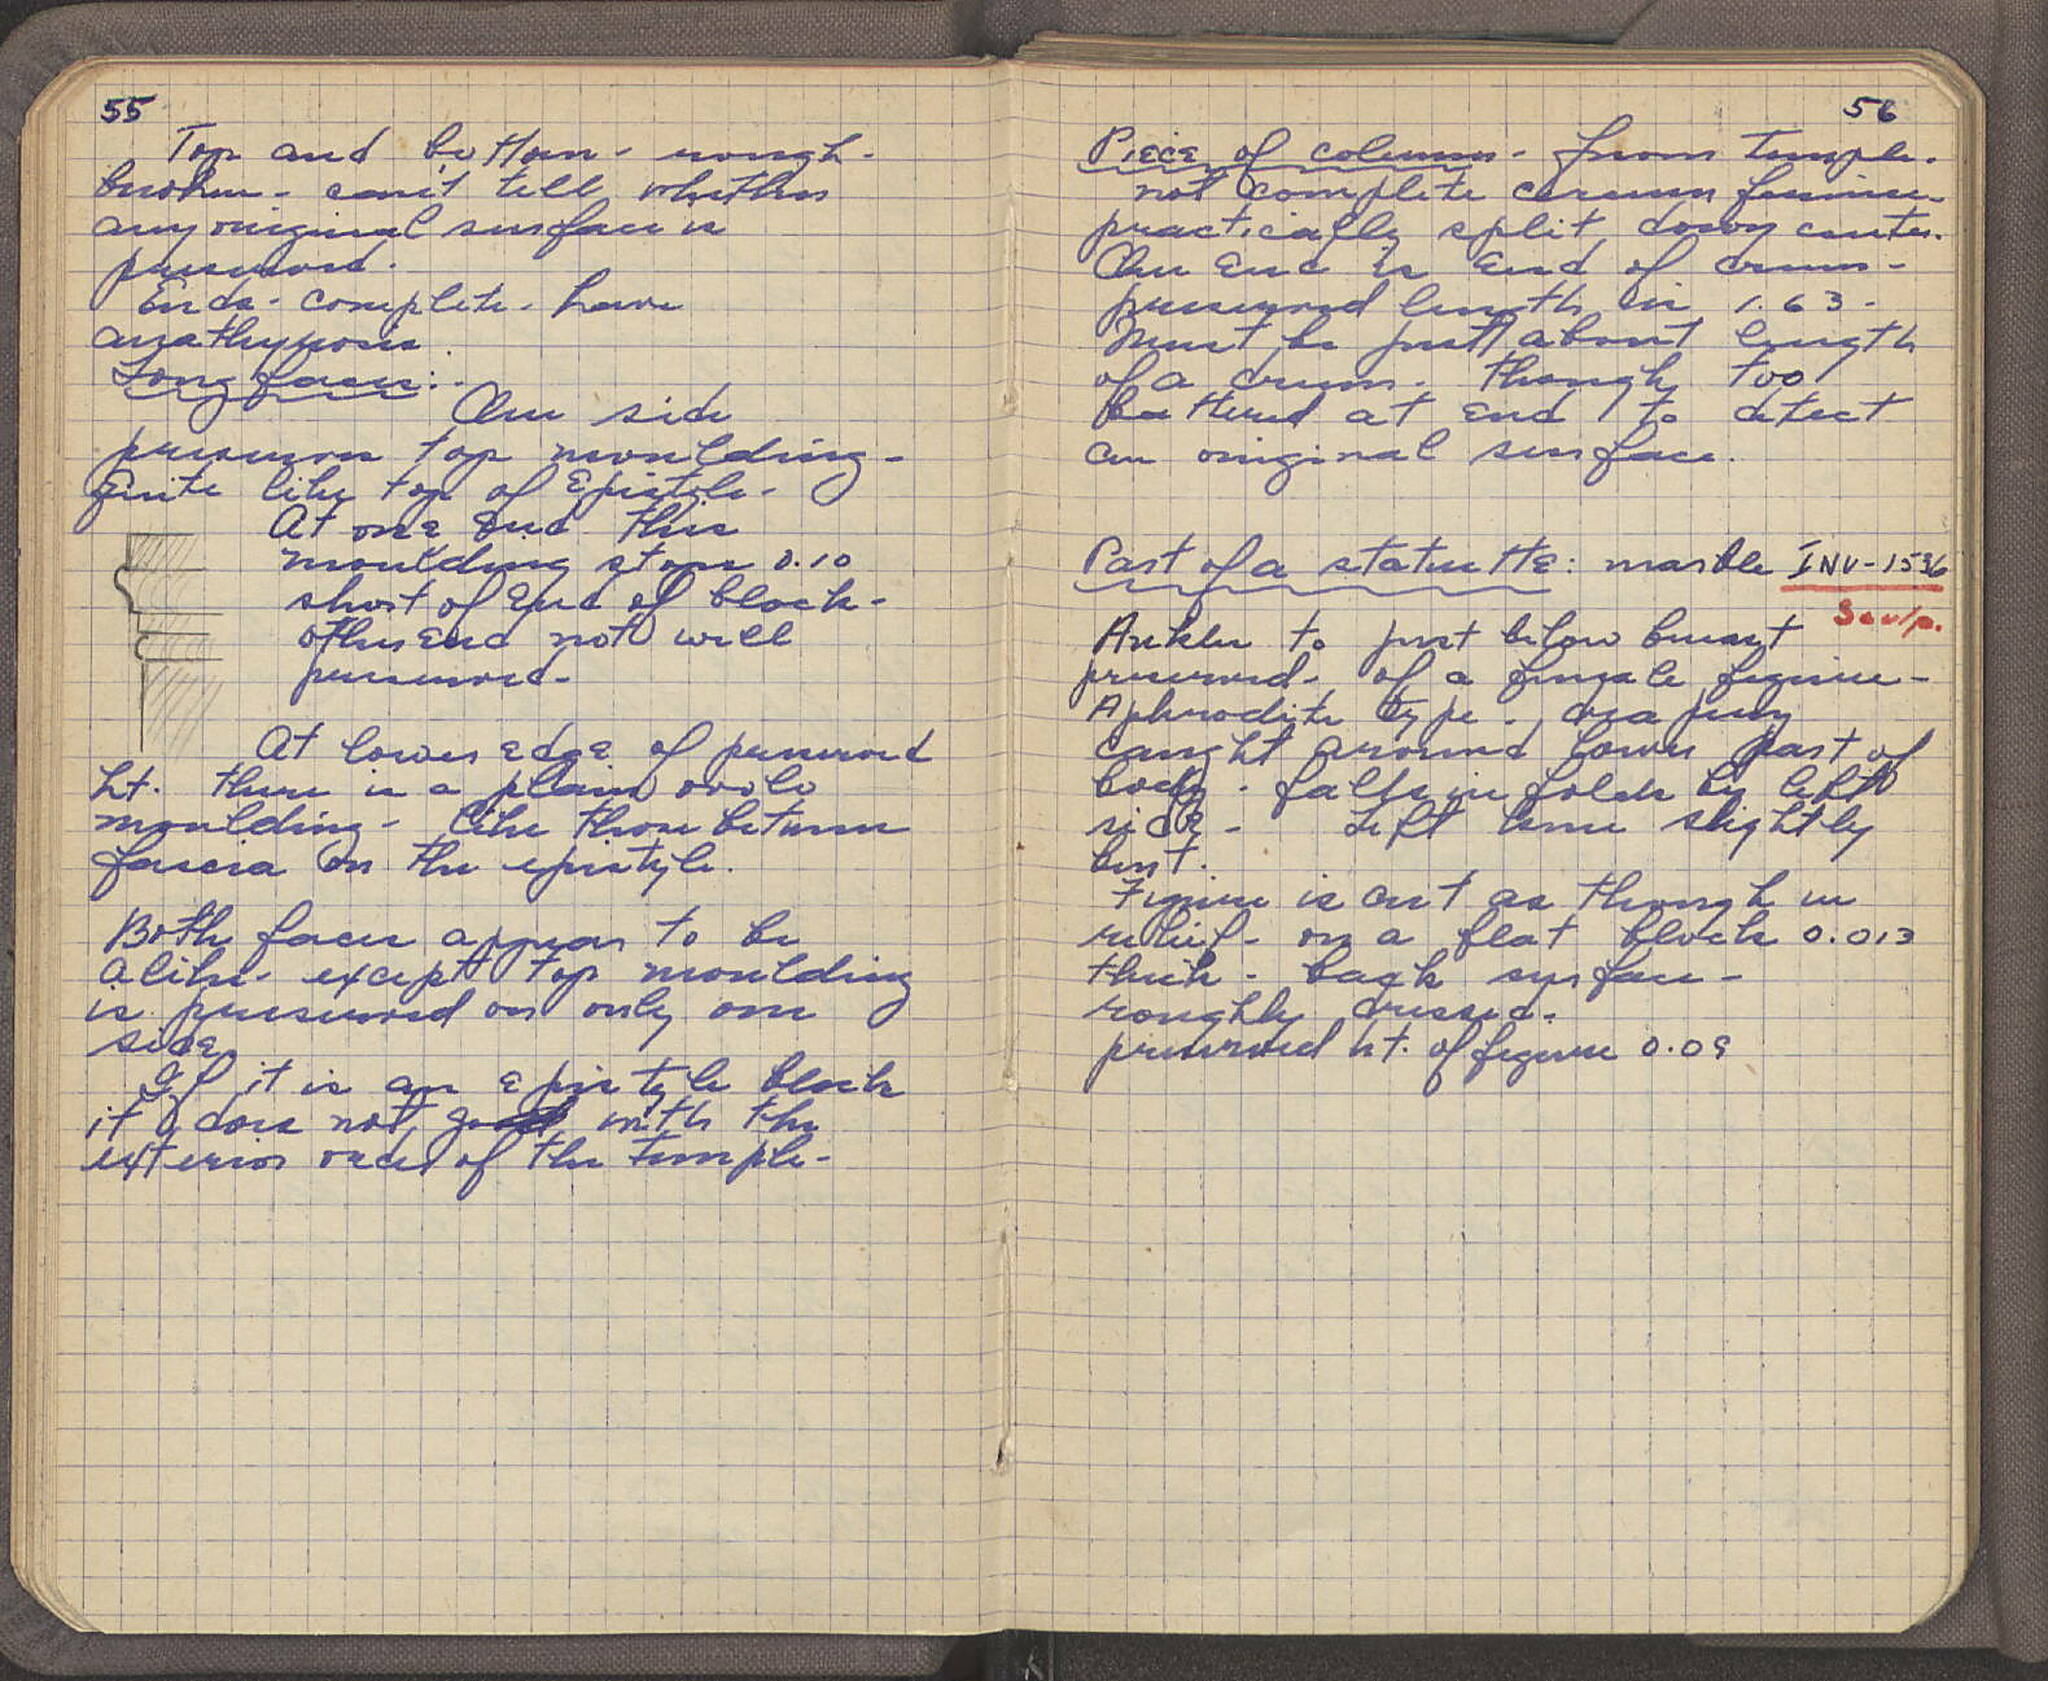 55
Top and bottom - rough -
broken - can't tell whether
any original surface is
preserved.
Ends - complete - have
anathyrosis.
Long faces:
One side
preserves top moulding -
quite like top of Epistyle -
At one end this
moulding stops 0.10
short of end of block -
other end not well
preserved -
At lower edge of preserved
ht. there is a plain ovolo
moulding - like those between
fascia on the epistyle.
Both faces appear to be
alike - except top moulding
is preserved on only one
side.
If it is an epistyle block
it does not go with the
exterior order of the temple -
56
Piece of column - from Temple.
not complete circumference -
practically split down center.
One end is end of drum -
preserved length is 1.63 -
Must be just about length
of a drum - though too
battered at end to detect
an original surface.
Part of a statuette: marble INV-1536
Sculp.
Ankles to just below breast
preserved - of a female figure -
Aphrodite type - drapery
caught around lower part of
body - falls in folds by left
side - Left knee slightly
bent.
Figure is cut as though in
relief - on a flat block 0.013
thick - back surface -
roughly dressed.
preserved ht. of figure 0.09